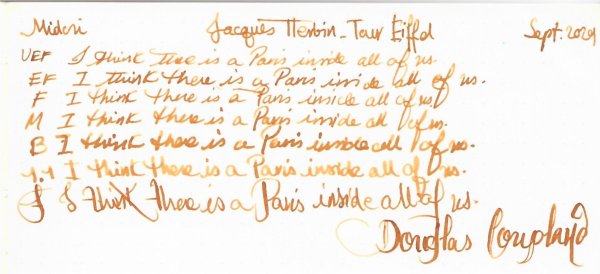 Midori Jacques Herbin - Tour Eiffel Sept. 2024
UEF I think there is a Paris inside all of us.
EF I think there is a Paris inside all of us.
F I think there is a Paris inside all of us
M I think there is a Paris inside all of us.
B I think there is a Paris inside all of us.
1.1 I think there is a Paris inside all of us.
J I think there is a Paris inside all of us.
Douglas Coupland